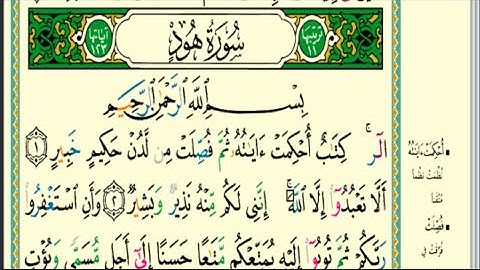 ترتيبها ١١
سُورَةُ هُودٍ
آياتها ١٢٣
بِسْمِ ٱللَّهِ ٱلرَّحْمَٰنِ ٱلرَّحِيمِ
الٓر ۚ كِتَٰبٌ أُحْكِمَتْ ءَايَٰتُهُۥ ثُمَّ فُصِّلَتْ مِن لَّدُنْ حَكِيمٍ خَبِيرٍ ١
أَلَّا تَعْبُدُوٓا۟ إِلَّا ٱللَّهَ ۚ إِنَّنِى لَكُم مِّنْهُ نَذِيرٌ وَبَشِيرٌ ٢ وَأَنِ ٱسْتَغْفِرُوا۟
رَبَّكُمْ ثُمَّ تُوبُوٓا۟ إِلَيْهِ يُمَتِّعْكُم مَّتَٰعًا حَسَنًا إِلَىٰٓ أَجَلٍ مُّسَمًّى وَيُؤْتِ
أُحْكِمَتْ ءَايَٰتُهُ
نُظِمَتْ نَظْمًا
مُتْقَنًا
فُصِّلَتْ
فُرِّقَتْ فِي